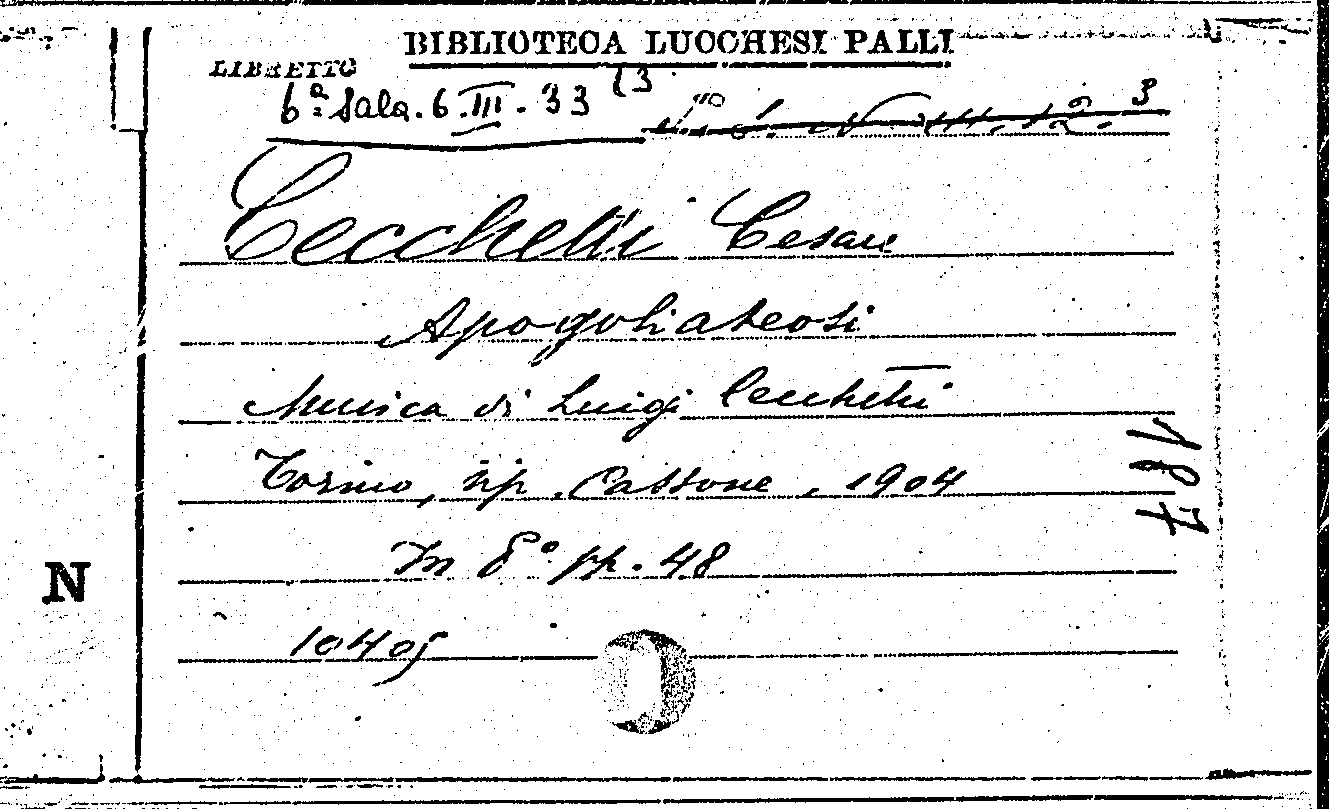 BIBLIOTECA LUCCHESI PALLI
LIBRETTO
6ª Sala. 6. III. 33 (3
3
Cecchetti Cesare
Apogoliateosi
Musica di Luigi Cecchetti
Torino, tip. Cassone, 1904
In 8° pp. 48
187
N
10405